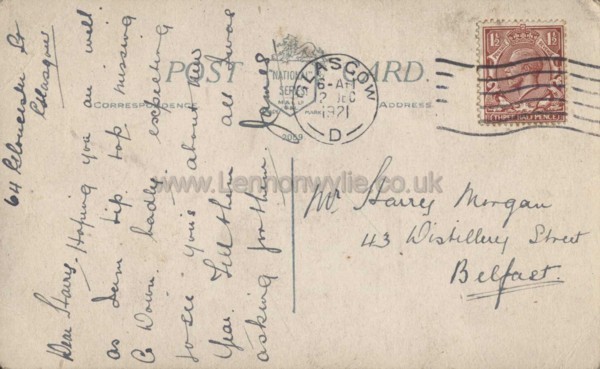 POST CARD.
CORRESPONDENCE
ADDRESS
"NATIONAL"
SERIES
2089
GLASGOW
6-AM
DEC
1921
D
THREE HALF PENCE
1½ 1½
www.Lennonwylie.co.uk
64 Gloucester St
Glasgow
Dear Harry, Hoping you are well
as I am tip top missing
Co Down badly expecting
to see yous about New
Year. Tell them all I was
asking for them.
James
Mr Harry Morgan
43 Distillery Street
Belfast.